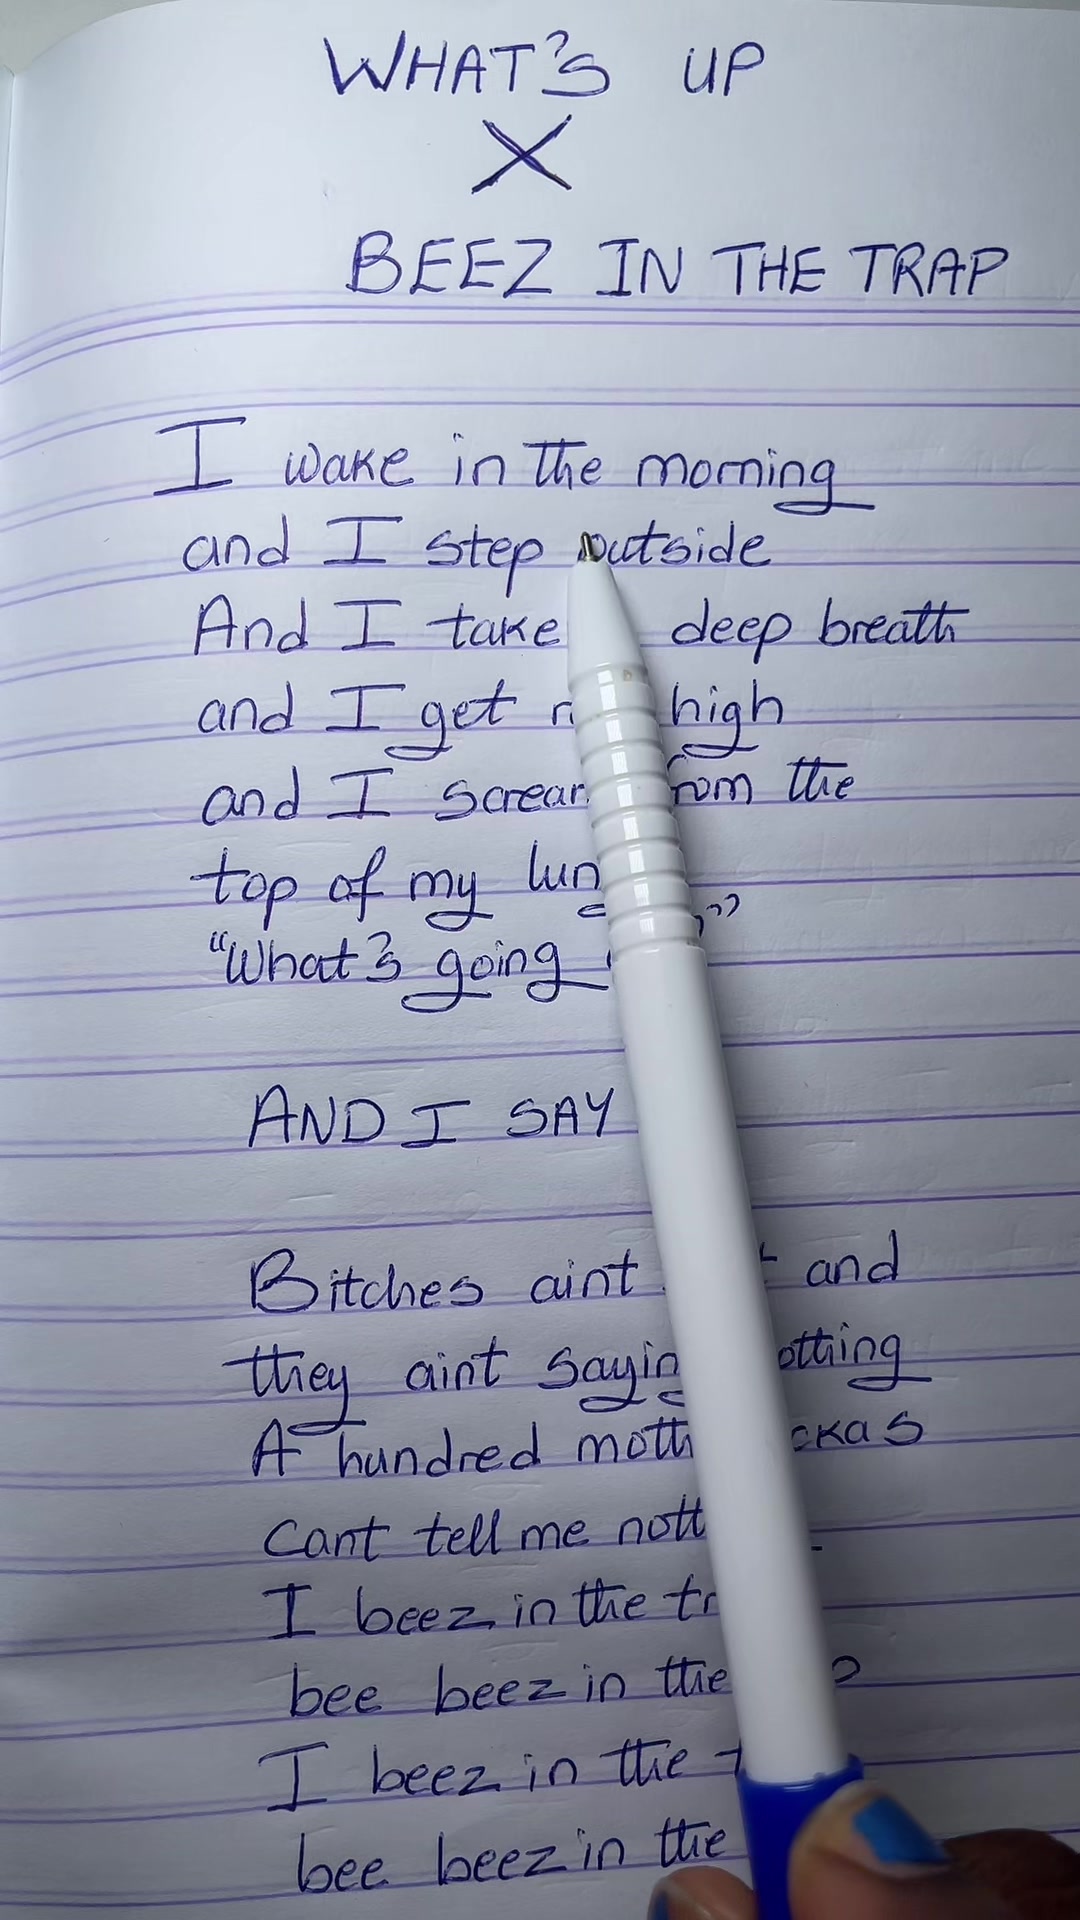 WHAT'S UP
X
BEEZ IN THE TRAP
I wake in the morning
and I step outside
And I take deep breath
and I get high
and I from the
top of my
"What's going
AND I SAY
Bitches aint and
they aint
A hundred
Cant tell me
I beez in the
bee beez in the
I beez in the
bee beez in the